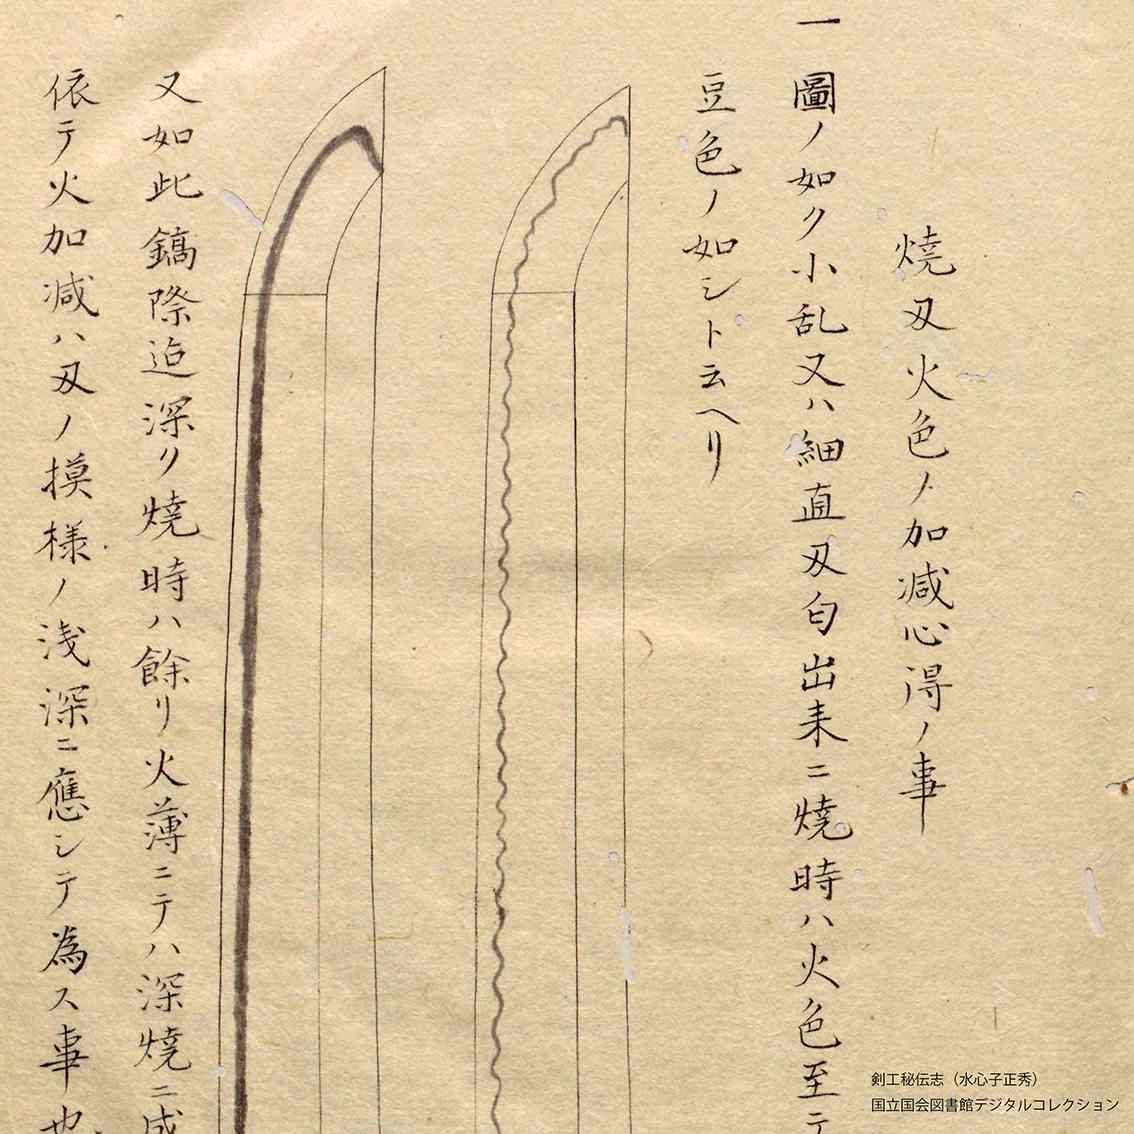 焼刄火色ノ加减心得ノ事
一圖ノ如ク小乱又ハ細直刄匂出来ニ焼時ハ火色至テ
豆色ノ如シト云ヘリ
又如此鎬際迠深ク焼時ハ餘リ火薄ニテハ深焼ニ成
依テ火加减ハ刄ノ摸様ノ浅深ニ應シテ為ス事也
剣工秘伝志（水心子正秀）
国立国会図書館デジタルコレクション